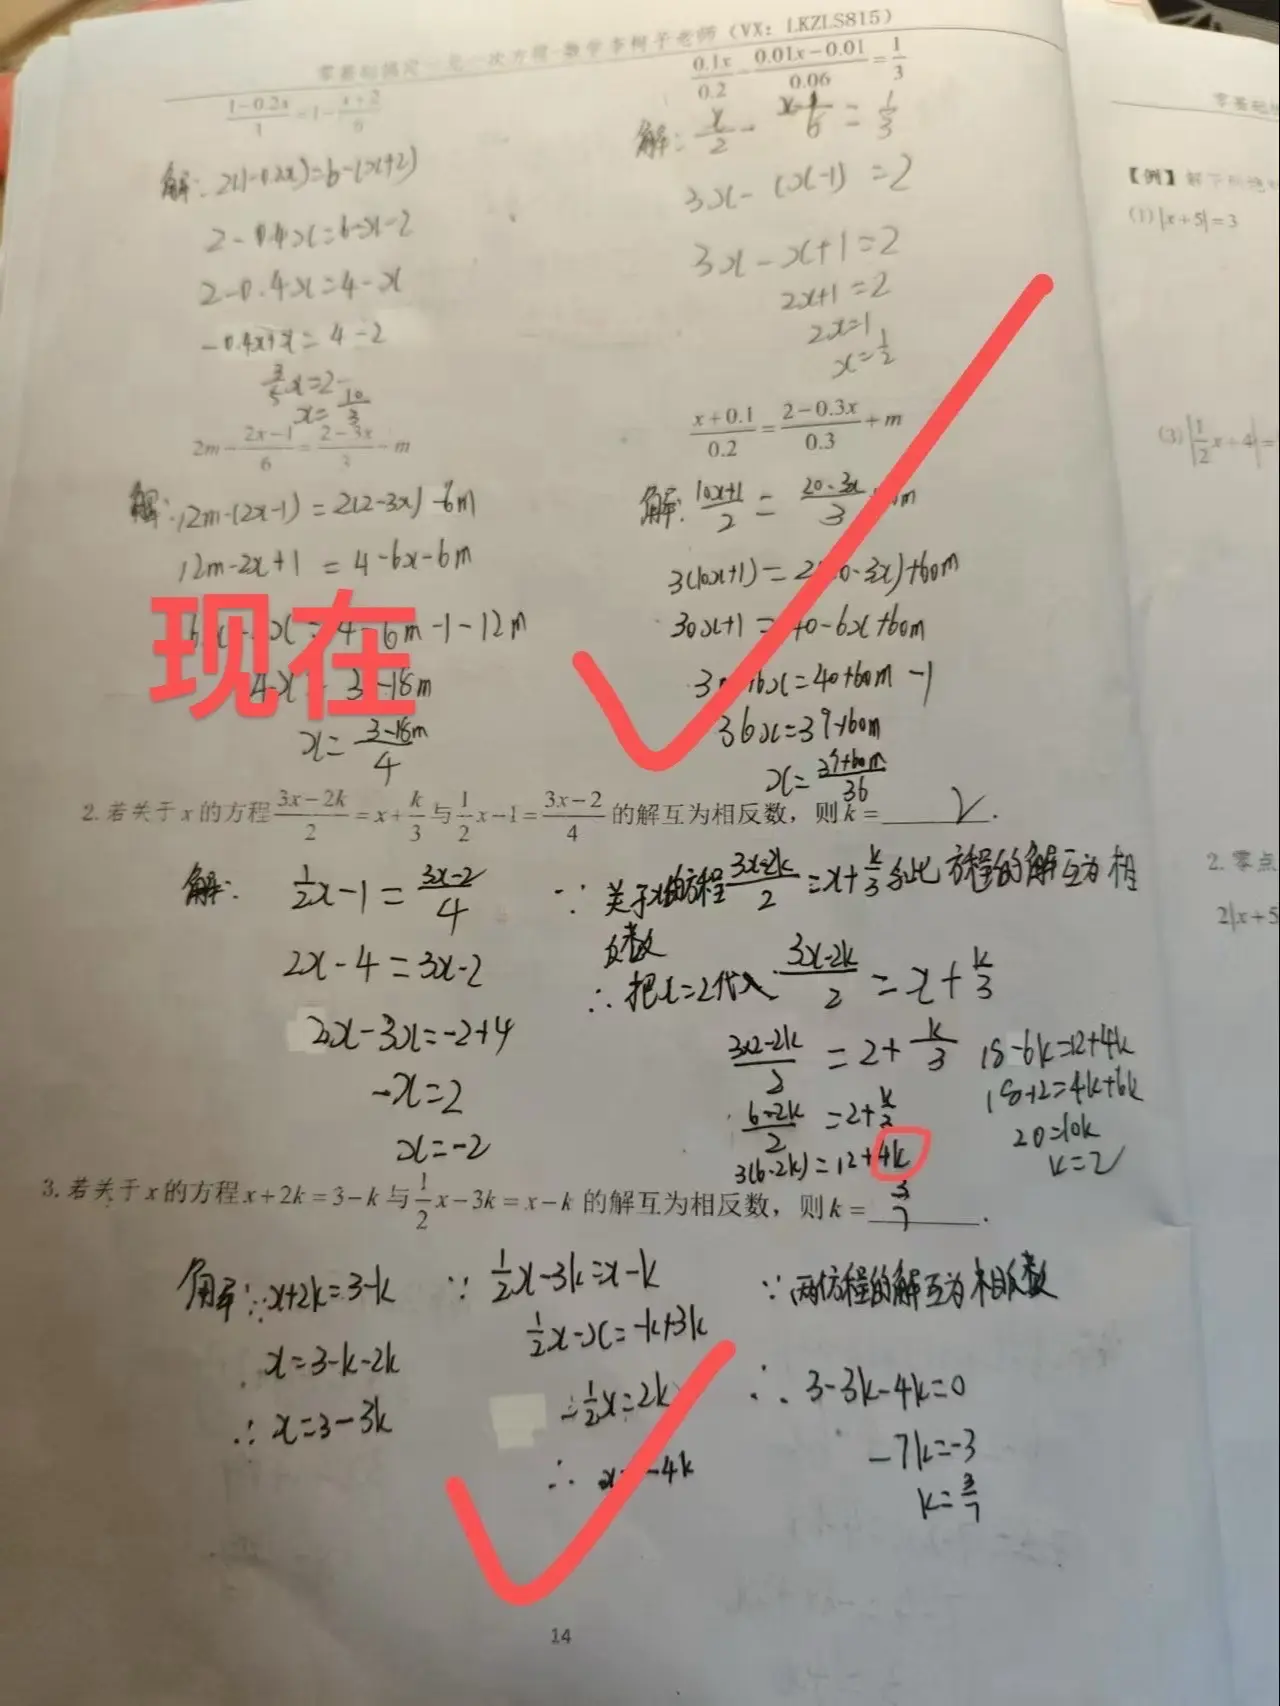 零基础搞定一元一次方程-数学李树子老师（VX：LKZLS815）
(1-0.2x)/3=1-(x+2)/6
解：2(1-0.2x)=6-(x+2)
2-0.4x=6-x-2
2-0.4x=4-x
-0.4x+x=4-2
3/5x=2
x=10/3
0.1x/0.2-(0.01x-0.01)/0.06=1/3
解：x/2-(x-1)/6=1/3
3x-(x-1)=2
3x-x+1=2
2x+1=2
2x=1
x=1/2
2m-(2x-1)/6=(2-3x)/3-m
解：12m-(2x-1)=2(2-3x)-6m
12m-2x+1=4-6x-6m
4-6m-1-12m
4x=3-18m
x=(3-18m)/4
(x+0.1)/0.2=(2-0.3x)/0.3+m
解：(10x+1)/2=(20-3x)/3 m
3(10x+1)=2(20-3x)+60m
30x+1=40-6x+60m
30x+6x=40+60m-1
36x=39+60m
x=(39+60m)/36
现在
2.若关于x的方程(3x-2k)/2=x+k/3与1/2x-1=(3x-2)/4的解互为相反数，则k=2.
解：1/2x-1=(3x-2)/4
2x-4=3x-2
2x-3x=-2+4
-x=2
x=-2
∵关于x的方程(3x-2k)/2=x+k/3和此方程的解互为相
反数
∴把x=2代入(3x-2k)/2=x+k/3
(3×2-2k)/2=2+k/3
(6-2k)/2=2+k/3
3(6-2k)=12+4k
18-6k=12+4k
18+2=4k+6k
20=10k
k=2
3.若关于x的方程x+2k=3-k与1/2x-3k=x-k的解互为相反数，则k=3/7.
解：∵x+2k=3-k
x=3-k-2k
∴x=3-3k
∵1/2x-3k=x-k
1/2x-x=-k+3k
-1/2x=2k
∴x=-4k
∵两方程的解互为相反数
∴3-3k-4k=0
-7k=-3
k=3/7
14
零基础
【例】解下列绝
(1)|x+5|=3
(3)|1/2x+4|=
2.零点
2|x+5